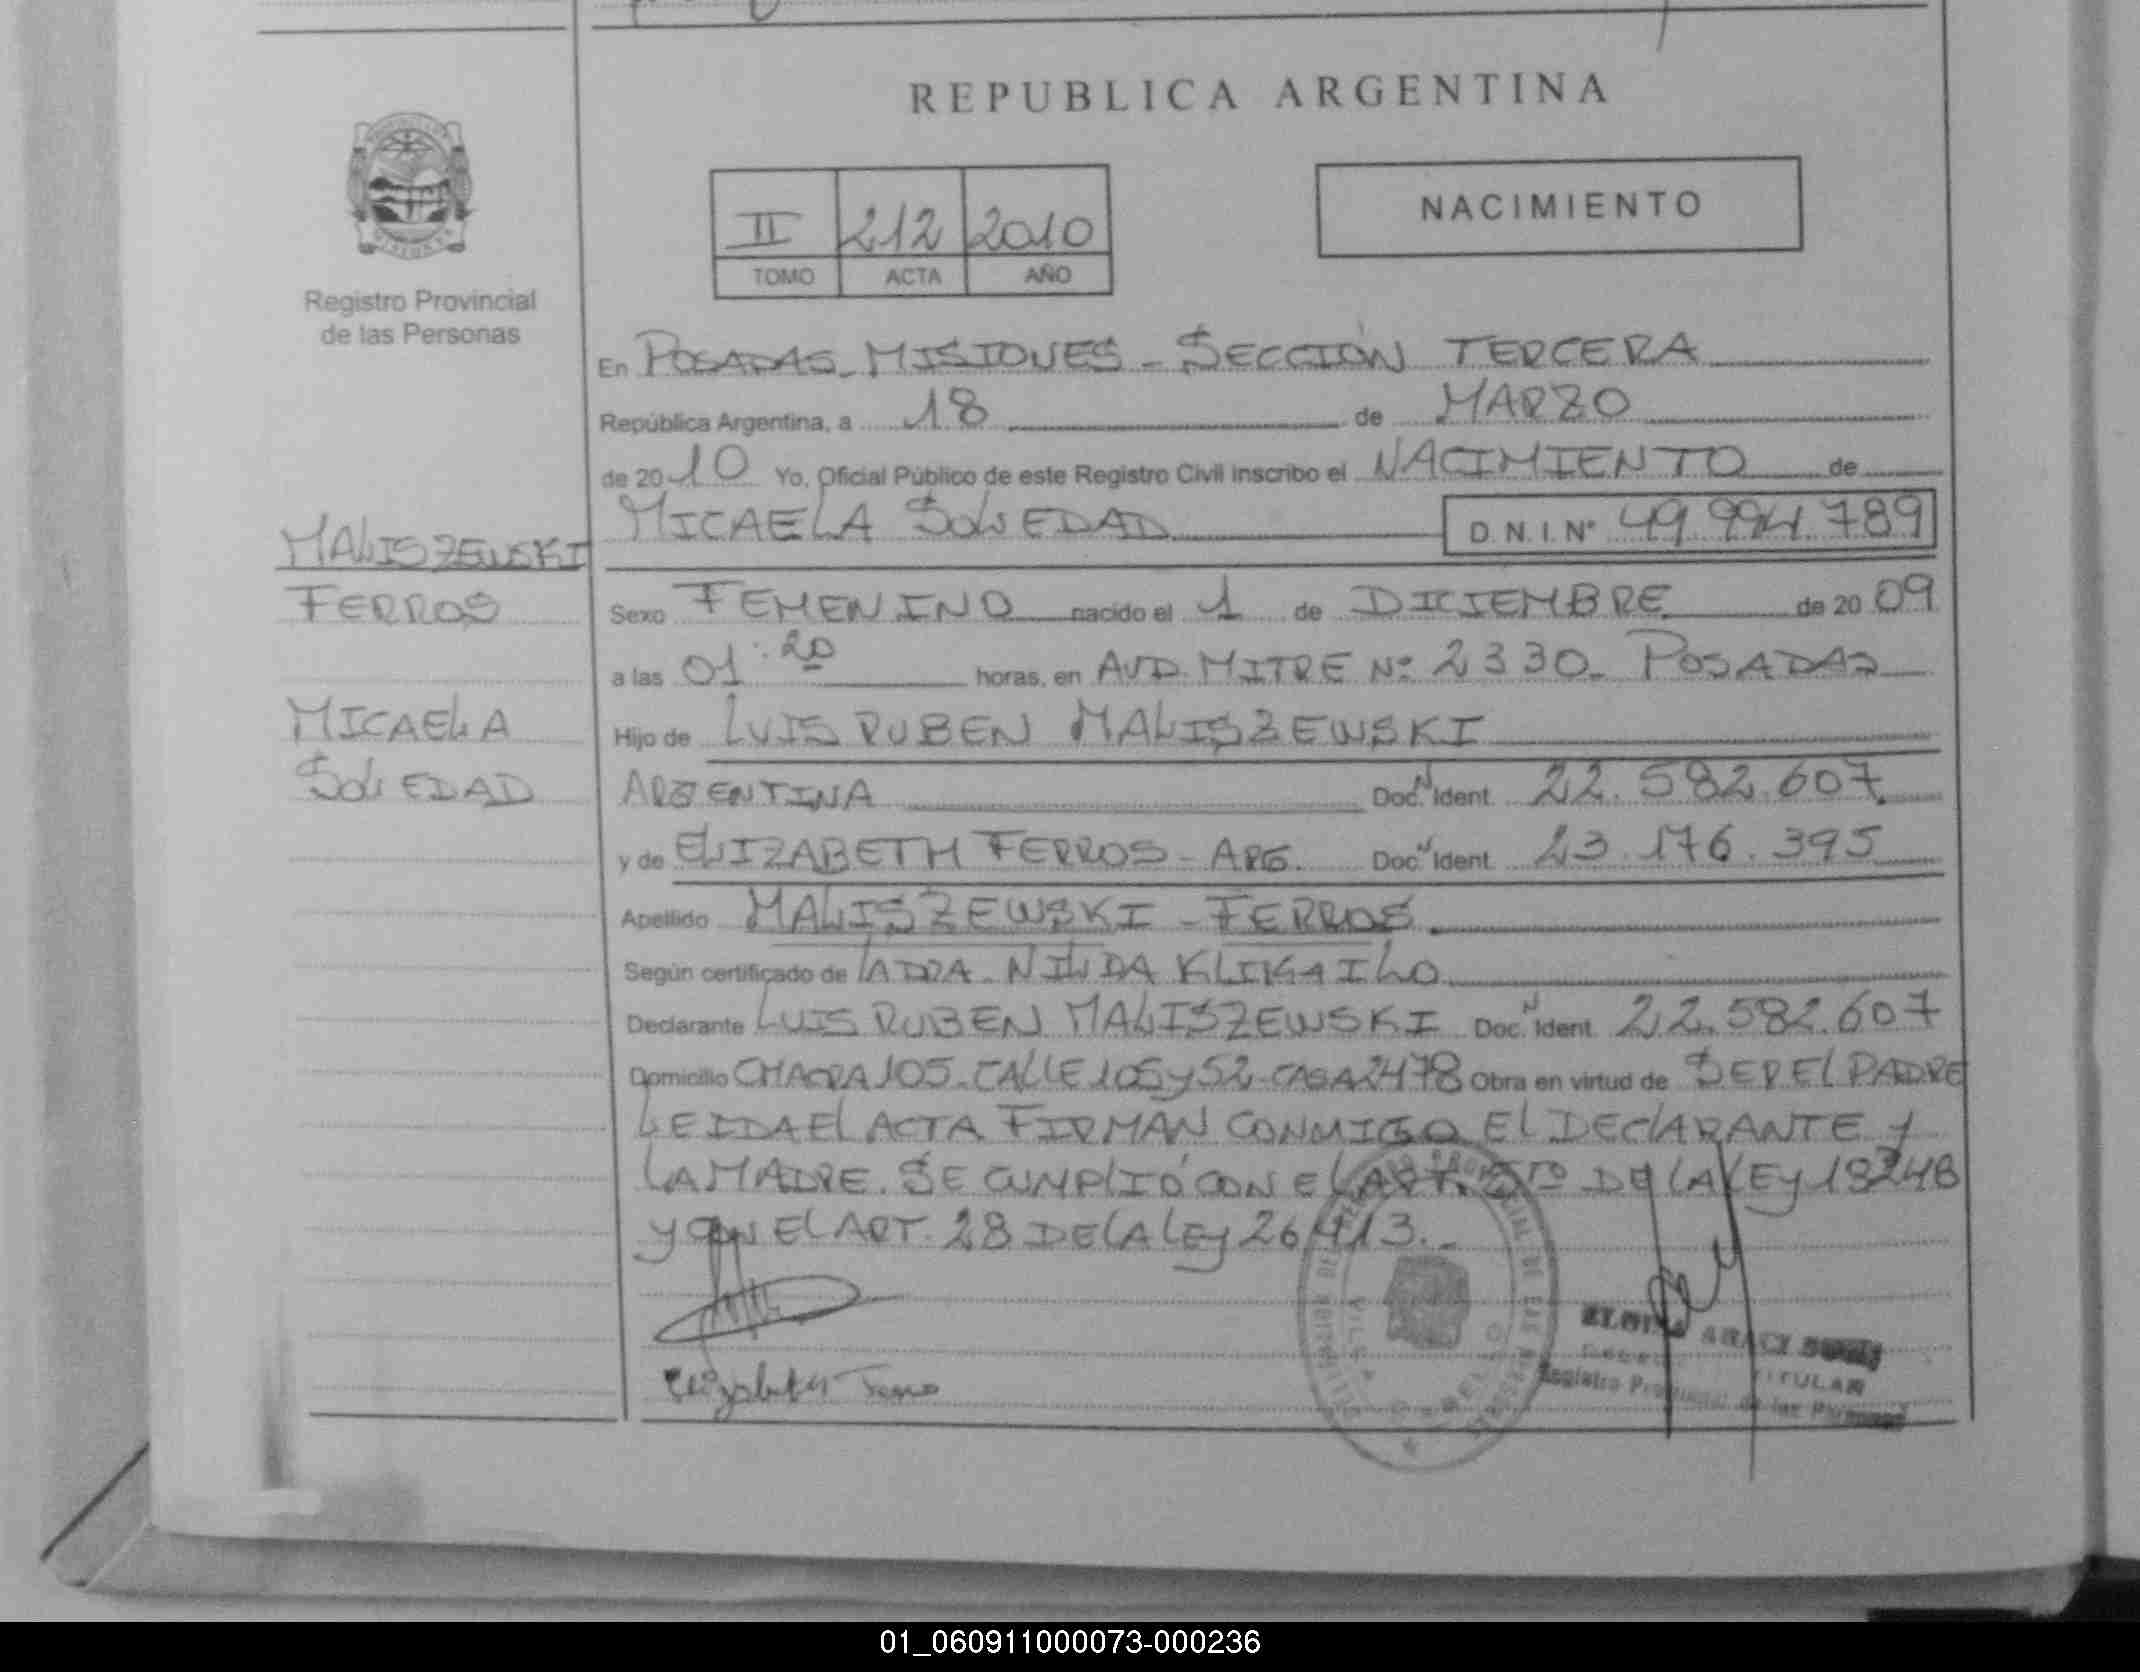 REPUBLICA ARGENTINA
II 212 2010
TOMO ACTA AÑO
NACIMIENTO
Registro Provincial
de las Personas
En POSADAS - MISIONES - SECCIÓN TERCERA
República Argentina, a 18 de MARZO
de 2010 Yo, Oficial Público de este Registro Civil inscribo el NACIMIENTO de
MICAELA SOLEDAD D.N.I. Nº 49.994.789
MALISZEWSKI
FERROS
MICAELA
SOLEDAD
Sexo FEMENINO nacido el 1 de DICIEMBRE de 2009
a las 01:20 horas, en AVD. MITRE Nº 2330 - POSADAS
Hijo de LUIS RUBEN MALISZEWSKI
ARGENTINA Doc. N Ident. 22.582.607
y de ELIZABETH FERROS - ARG. Doc. N Ident. 23.176.395
Apellido MALISZEWSKI - FERROS
Según certificado de LA DRA. NILDA
Declarante LUIS RUBEN MALISZEWSKI Doc. N Ident. 22.582.607
Domicilio CHACRA 105 - CALLE 105 y 52 - CASA 2478 Obra en virtud de SER EL PADRE
LEIDA EL ACTA FIRMAN CONMIGO EL DECLARANTE Y
LA MADRE. SE CUMPLIÓ CON EL ART. 5TO DE LA LEY 18248
y CON EL ART. 28 DE LA LEY 26413.-
Elizabeth Ferros
TITULAR
Registro Provincial de las Personas
01_060911000073-000236